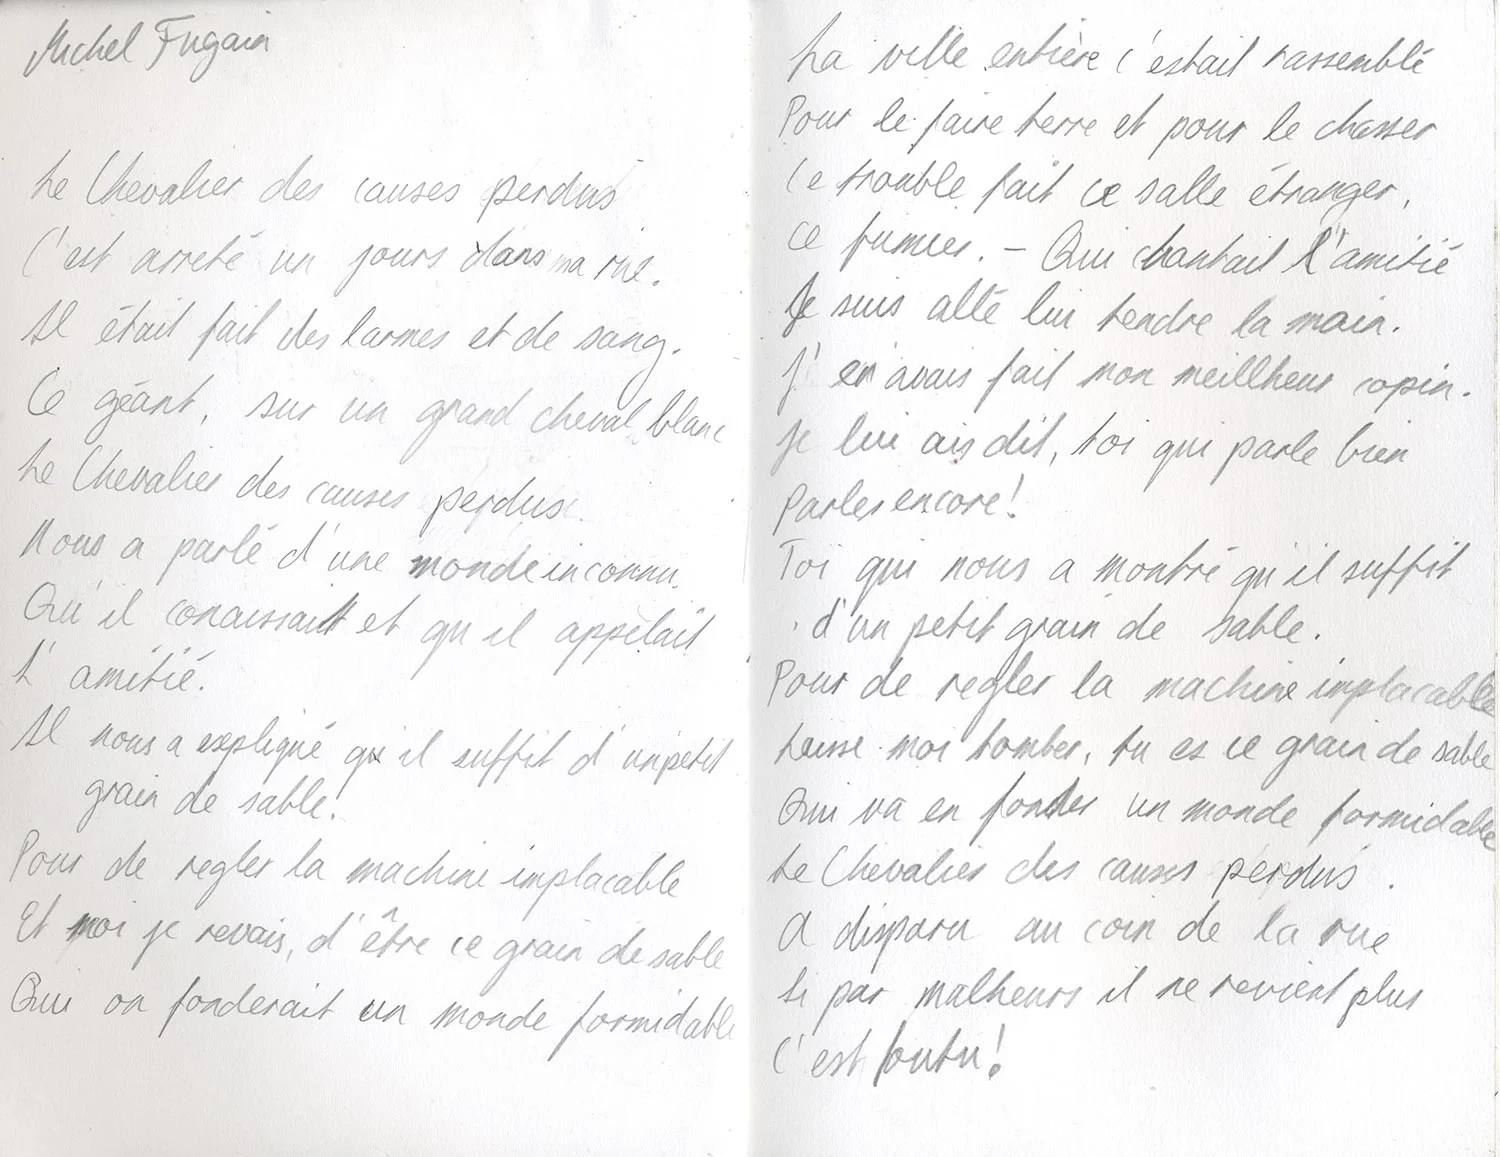 Michel Fugain
Le Chevalier des causes perdus
C'est arreté un jours dans ma rue.
Il était fait des larmes et de sang.
Ce géant, sur un grand cheval blanc
Le Chevalier des causes perdus.
Nous a parlé d'une monde inconnu.
Qu'il conaissait et qu'il appelait
L'amitié.
Il nous a expliqué qu'il suffit d'un petit
grain de sable!
Pour de regler la machine implacable
Et moi je revais, d'être ce grain de sable
Qui on fonderait un monde formidable
La ville entière c'estait rassemblé
Pour le faire terre et pour le chasser
Ce trouble fait ce salle étranger,
ce fumier. - Qui chantait l'amitié
Je suis allé lui tendre la main.
J'en avais fait mon meillheur copin.
Je lui ais dit, toi qui parle bien
Parles encore!
Toi qui nous a montré qu'il suffit
d'un petit grain de sable.
Pour de regler la machine implacable
Laisse moi tomber, tu es ce grain de sable
Qui va en fonder un monde formidable
Le Chevalier des causes perdus.
A disparu au coin de la rue
Si par malheurs il ne revient plus
C'est foutu!